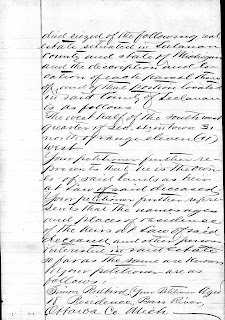 died siezed of the following real
estate situated in Leelanau
County and state of Michigan
and the description and lo-
cation of each parcel there
of and of that portion located
in said County of Leelanau
is as follows
The west half of the southwest
quarter of Sec. in town 31
north of range eleven (11)
west
Your petitioner further re-
presents that he is the own
er of said lands as heir
at law of said deceased
Your petitioner further repre-
sents that the names ages
and places of residence
of the heirs at law of said
deceased and other persons
interested in said estate
so far as the same are known
to your petitioner are as
follows:
Simon Redbird, your Petitioner Aged
18 Residence Bass River,
Ottawa Co. Mich.